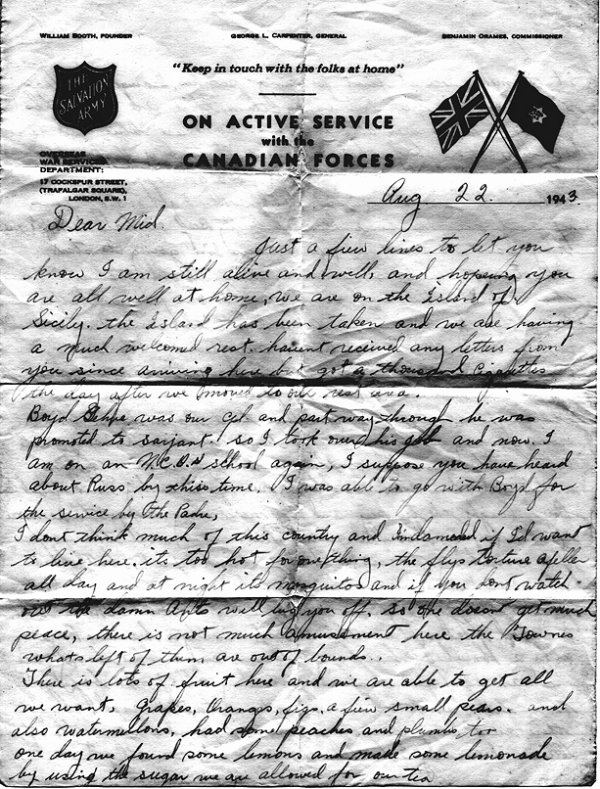 WILLIAM BOOTH, FOUNDER
GEORGE L. CARPENTER, GENERAL
BENJAMIN ORAMES, COMMISSIONER
"Keep in touch with the folks at home"
THE
SALVATION
ARMY
ON ACTIVE SERVICE
with the
CANADIAN FORCES
OVERSEAS
WAR SERVICES
DEPARTMENT:
17 COCKSPUR STREET,
(TRAFALGAR SQUARE),
LONDON, S.W. 1
Aug 22. 1943.
Dear Mid.
Just a few lines to let you
know I am still alive and well, and hopeing you
are all well at home, we are on the Island of
Sicily. the Island has been taken and we are having
a much welcomed rest. havent received any letters from
you since arriving here but got a thousand cigarettes
the day after we moved to our rest area.
Boyd was our Cpl and part way through he was
promoted to sarjant so I took over his job and now I
am on an N.C.O.s school again, I suppose you have heard
about Russ by this time. I was able to go with Boyd for
the service by the Padre,
I dont think much of this country and if I'd want
to live here. its too hot for one thing, the flys torture a feller
all day and at night its mosquitos and if you dont watch
out the damn Ants will lug you off. so one doesnt get much
peace, there is not much amusement here the Townes
whats left of them are out of bounds..
There is lots of fruit here and we are able to get all
we want, Grapes, Oranges, figs, a few small pears. and
also watermellons, had some peaches and plumbs too
one day we found some lemons and make some lemonade
by using the sugar we are allowed for our tea